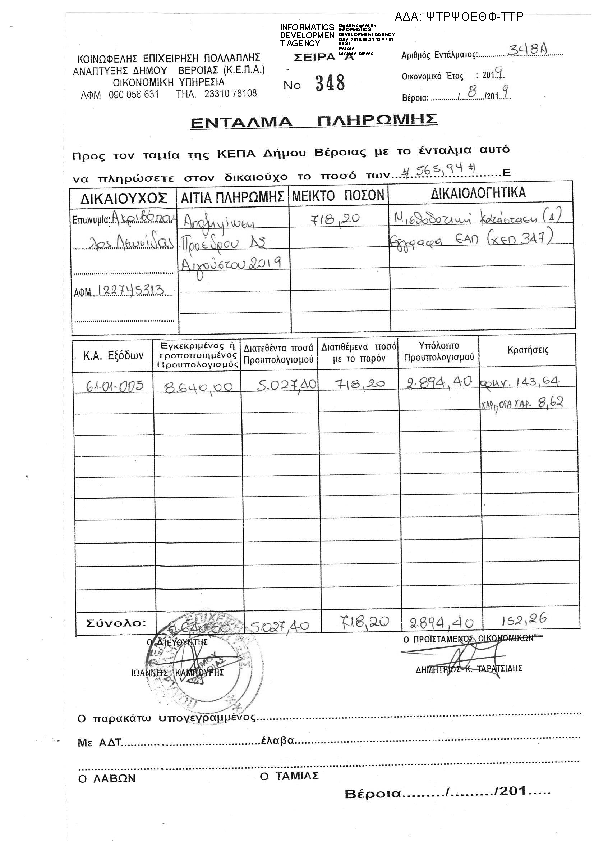 ΑΔΑ: ΨΤΡΨΟΕΘΦ-ΤΤΡ
INFORMATICS
DEVELOPMEN
T AGENCY
ΚΟΙΝΩΦΕΛΗΣ ΕΠΙΧΕΙΡΗΣΗ ΠΟΛΛΑΠΛΗΣ
ΑΝΑΠΤΥΞΗΣ ΔΗΜΟΥ ΒΕΡΟΙΑΣ (Κ.Ε.Π.Α.)
ΟΙΚΟΝΟΜΙΚΗ ΥΠΗΡΕΣΙΑ
ΑΦΜ 090 056 631 ΤΗΛ. 23310 78108
ΣΕΙΡΑ "Α"
No 348
Αριθμός Εντάλματος: 348Α
Οικονομικό Έτος : 2019
Βέροια: / 8 /2019
ΕΝΤΑΛΜΑ ΠΛΗΡΩΜΗΣ
Προς τον ταμία της ΚΕΠΑ Δήμου Βέροιας με το ένταλμα αυτό
να πληρώσετε στον δικαιούχο το ποσό των #565,94# Ε
ΔΙΚΑΙΟΥΧΟΣ ΑΙΤΙΑ ΠΛΗΡΩΜΗΣ ΜΕΙΚΤΟ ΠΟΣΟΝ ΔΙΚΑΙΟΛΟΓΗΤΙΚΑ
Επωνυμία: Ακριβόπου Αποζημίωση 718,20 Μισθοδοτική κατάσταση (1)
λος Λεωνίδας Προέδρου ΔΣ έγγραφα ΕΑΠ (ΧΕΠ 347)
Αυγούστου 2019
ΑΦΜ 122745313
Κ.Α. Εξόδων Εγκεκριμένος ή τροποποιημένος Προυπολογισμός Διατεθέντα ποσά Προυπολογισμού Διατιθέμενα ποσά με το παρόν Υπόλοιπο Προυπολογισμού Κρατήσεις
61-01-005 8.640,00 5.027,40 718,20 2.894,40 φμυ. 143,64
8,62
Σύνολο: 5.027,40 718,20 2894,40 152,26
Ο ΔΙΕΥΘΥΝΤΗΣ Ο ΠΡΟΪΣΤΑΜΕΝΟΣ ΟΙΚΟΝΟΜΙΚΩΝ
ΙΩΑΝΝΗΣ ΚΑΜΠΟΥΡΗΣ ΔΗΜΗΤΡΙΟΣ Κ. ΤΑΡΑΤΣΙΔΗΣ
Ο παρακάτω υπογεγραμμένος
Με ΑΔΤ έλαβα
Ο ΛΑΒΩΝ Ο ΤΑΜΙΑΣ
Βέροια........./........./201.....